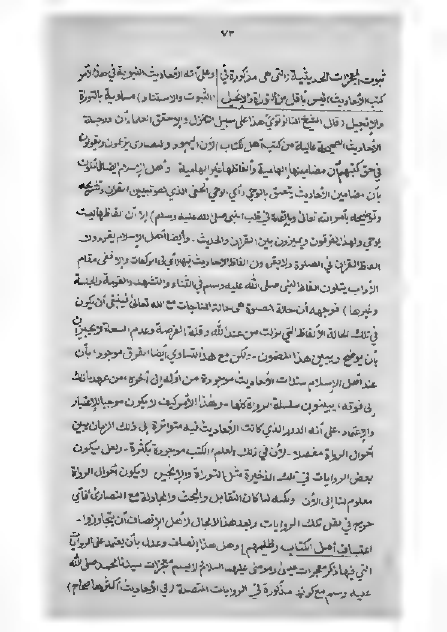 ٧٣
ثبوت المعجزات الحديثية (التي هي مذكورة في وعلى أنه الأحاديث النبوية في هذا الأمر
كتب الأحاديث) ليس بأقل من التوراة والإنجيل (الثبوت والاستناد) مساوية بالتوراة
والإنجيل (قال الشيخ النانوتوي) هذا على سبيل التنزل وإلا فحق العلماء أن درجة
الصحيحة عالية من كتب أهل الكتاب لأن اليهود والنصارى يزعمون ويقولون
في حق كتبهم أن مضامينها إلهامية وألفاظها غير إلهامية وأهل الإسلام أيضا قائلون
بأن مضامين الأحاديث تتعلق بالوحي (أي الوحي الخفي الذي هو تبيين القرآن وتشريحه
وتوضيحه بأمر الله تعالى وإلقائه في قلب النبي صلى الله عليه وسلم) إلا أن ألفاظها ليست
بوحي ولهذا يفرقون ويميزون بين القرآن والحديث - وأيضا أهل الإسلام يقرءون
ألفاظ القرآن في الصلوة ولا يقرءون ألفاظ الأحاديث فيها أي في الركعات وإلا ففي مقام
الآداب يتلون ألفاظ النبي صلى الله عليه وسلم في الثناء والتشهد والقومة والجلسة
وغيرها) فوجهه أن حالة الصلوة هو حالة المناجات مع الله تعالى فينبغي أن يكون
في تلك الحالة الألفاظ التي نزلت من عند الله وقلة الفرصة وعدم السعة لا يجيزان
بأن يوضح ويبين هذا المضمون - لكن مع هذا التساوي أيضا الفرق موجود بأن
عند أهل الإسلام سندات الأحاديث موجودة من أوله إلى آخره من عهد بدئك
إلى فوته يبينون سلسلة الرواة كلها - وهذا الأمر كيف لا يكون موجبا للاعتبار
والاعتماد - على أنه الدور الذي كانت الأحاديث فيه متواترة إلى ذلك الزمان يبين
أحوال الرواة مفصلا - لأن في ذلك العلم الكتب موجودة بكثرة - ولعل سيكون
بعض الروايات في تلك الذخيرة مثل التوراة والإنجيل لا يكون أحوال الرواة
معلوم لنا إلى الآن ولكنه لما كان التقابل والبحث والمجادلة مع النصارى فأي
حرج في نقل تلك الروايات وبعد هذا الإجمال لأهل الإنصاف أن يتجاوزوا -
اعتساف أهل الكتاب وظلمهم وهل هذا إنصاف وعدل بأن يعتمد على الروايات
التي فيها ذكر معجزات عيسى وموسى عليهما السلام لا يسم معجزات سيدنا محمد صلى الله
عليه وسلم مع كونه مذكورة في الروايات المتصلة (في الأحاديث أكثرها صحاح)